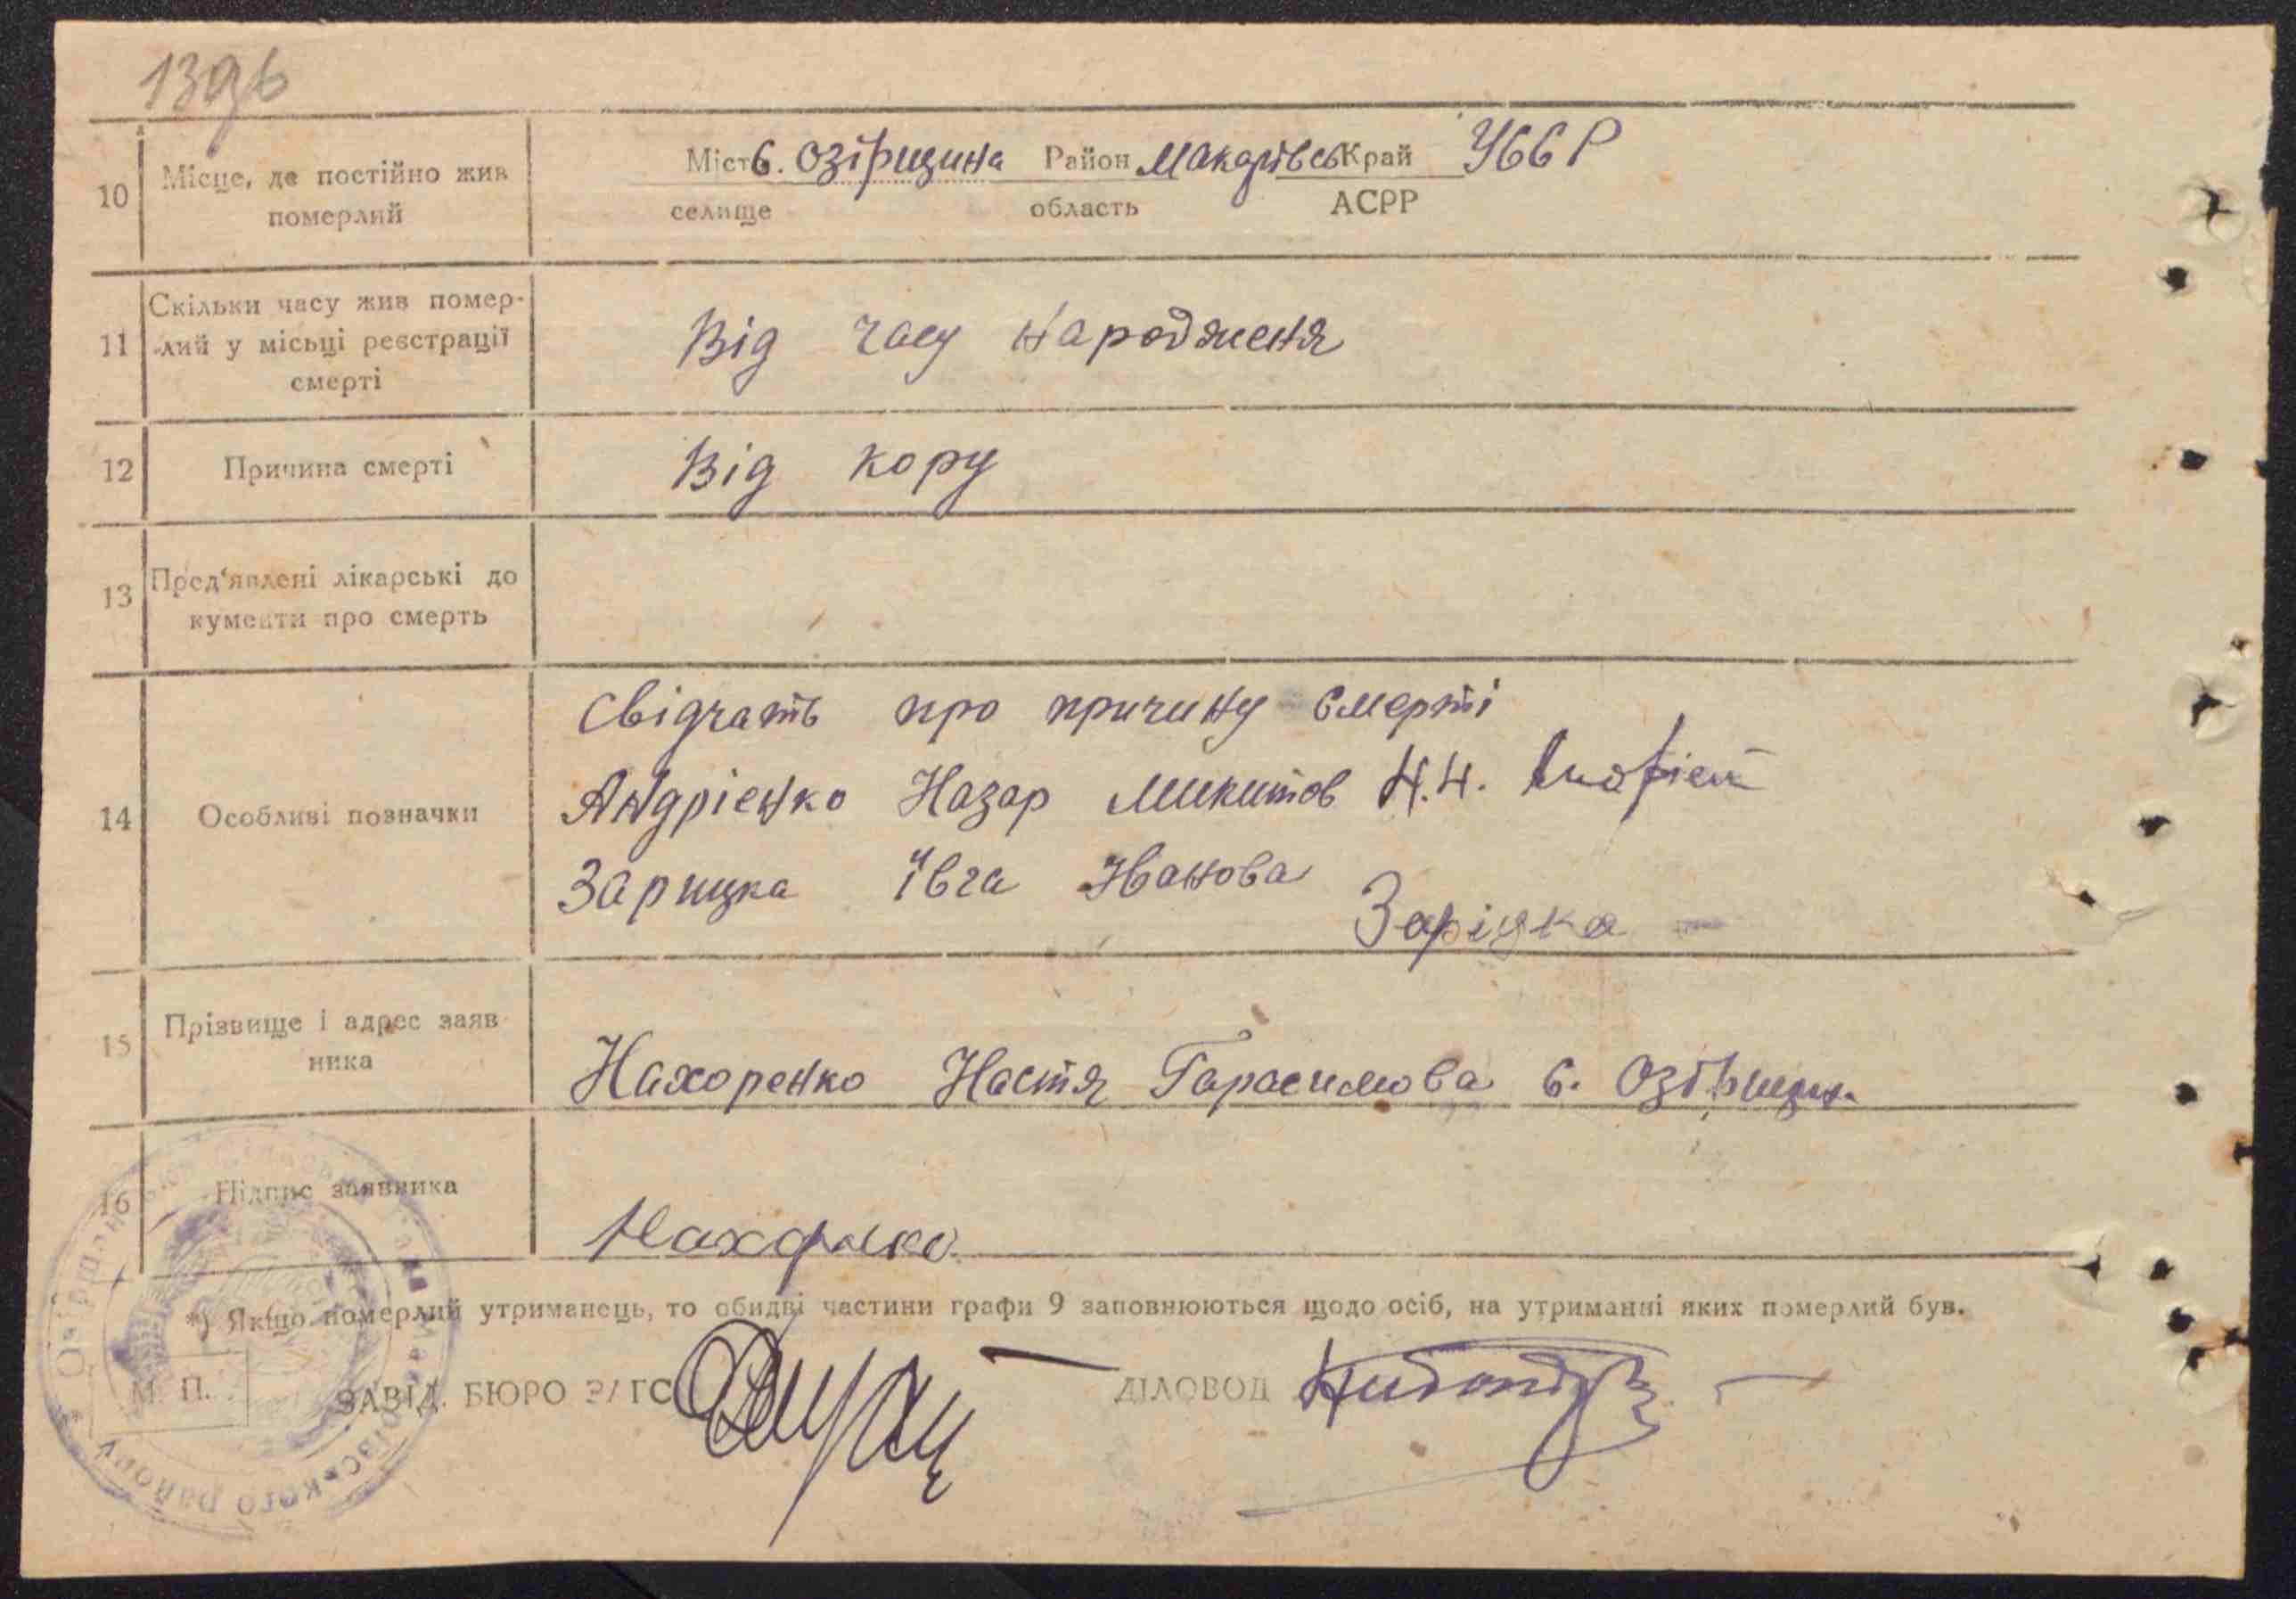 139б
10 Місце, де постійно жив померлий
Місто с. Озірщина Район Макарівськ Край УССР
селище область АСРР
11 Скільки часу жив помер-
лий у місьці реєстрації
смерті
Від часу народженя
12 Причина смерті
Від кору
13 Пред'явлені лікарські до
кументи про смерть
14 Особливі позначки
Свідчать про причину смерті
Андрієнко Назар Микитов Н.Н.
Зарицка Ївга Іванова
Заріцка
15 Прізвище і адрес заяв
ника
Нахоренко Настя Гарасимова с. Озірщин.
16 Підпис заявника
*) Якщо померлий утриманець, то обидві частини графи 9 заповнюються щодо осіб, на утриманні яких померлий був.
М. П. ЗАВІД. БЮРО ЗАГС ДІЛОВОД